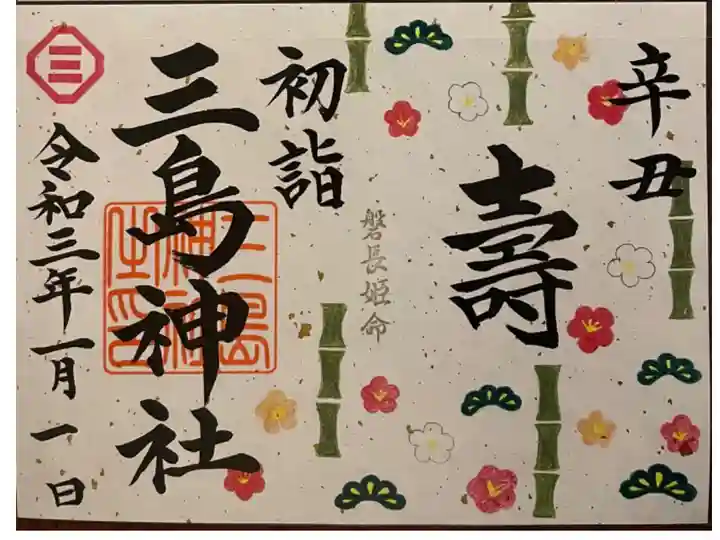 辛丑
壽
磐長姫命
初詣
三島神社
三島神社之印
令和三年一月一日
三